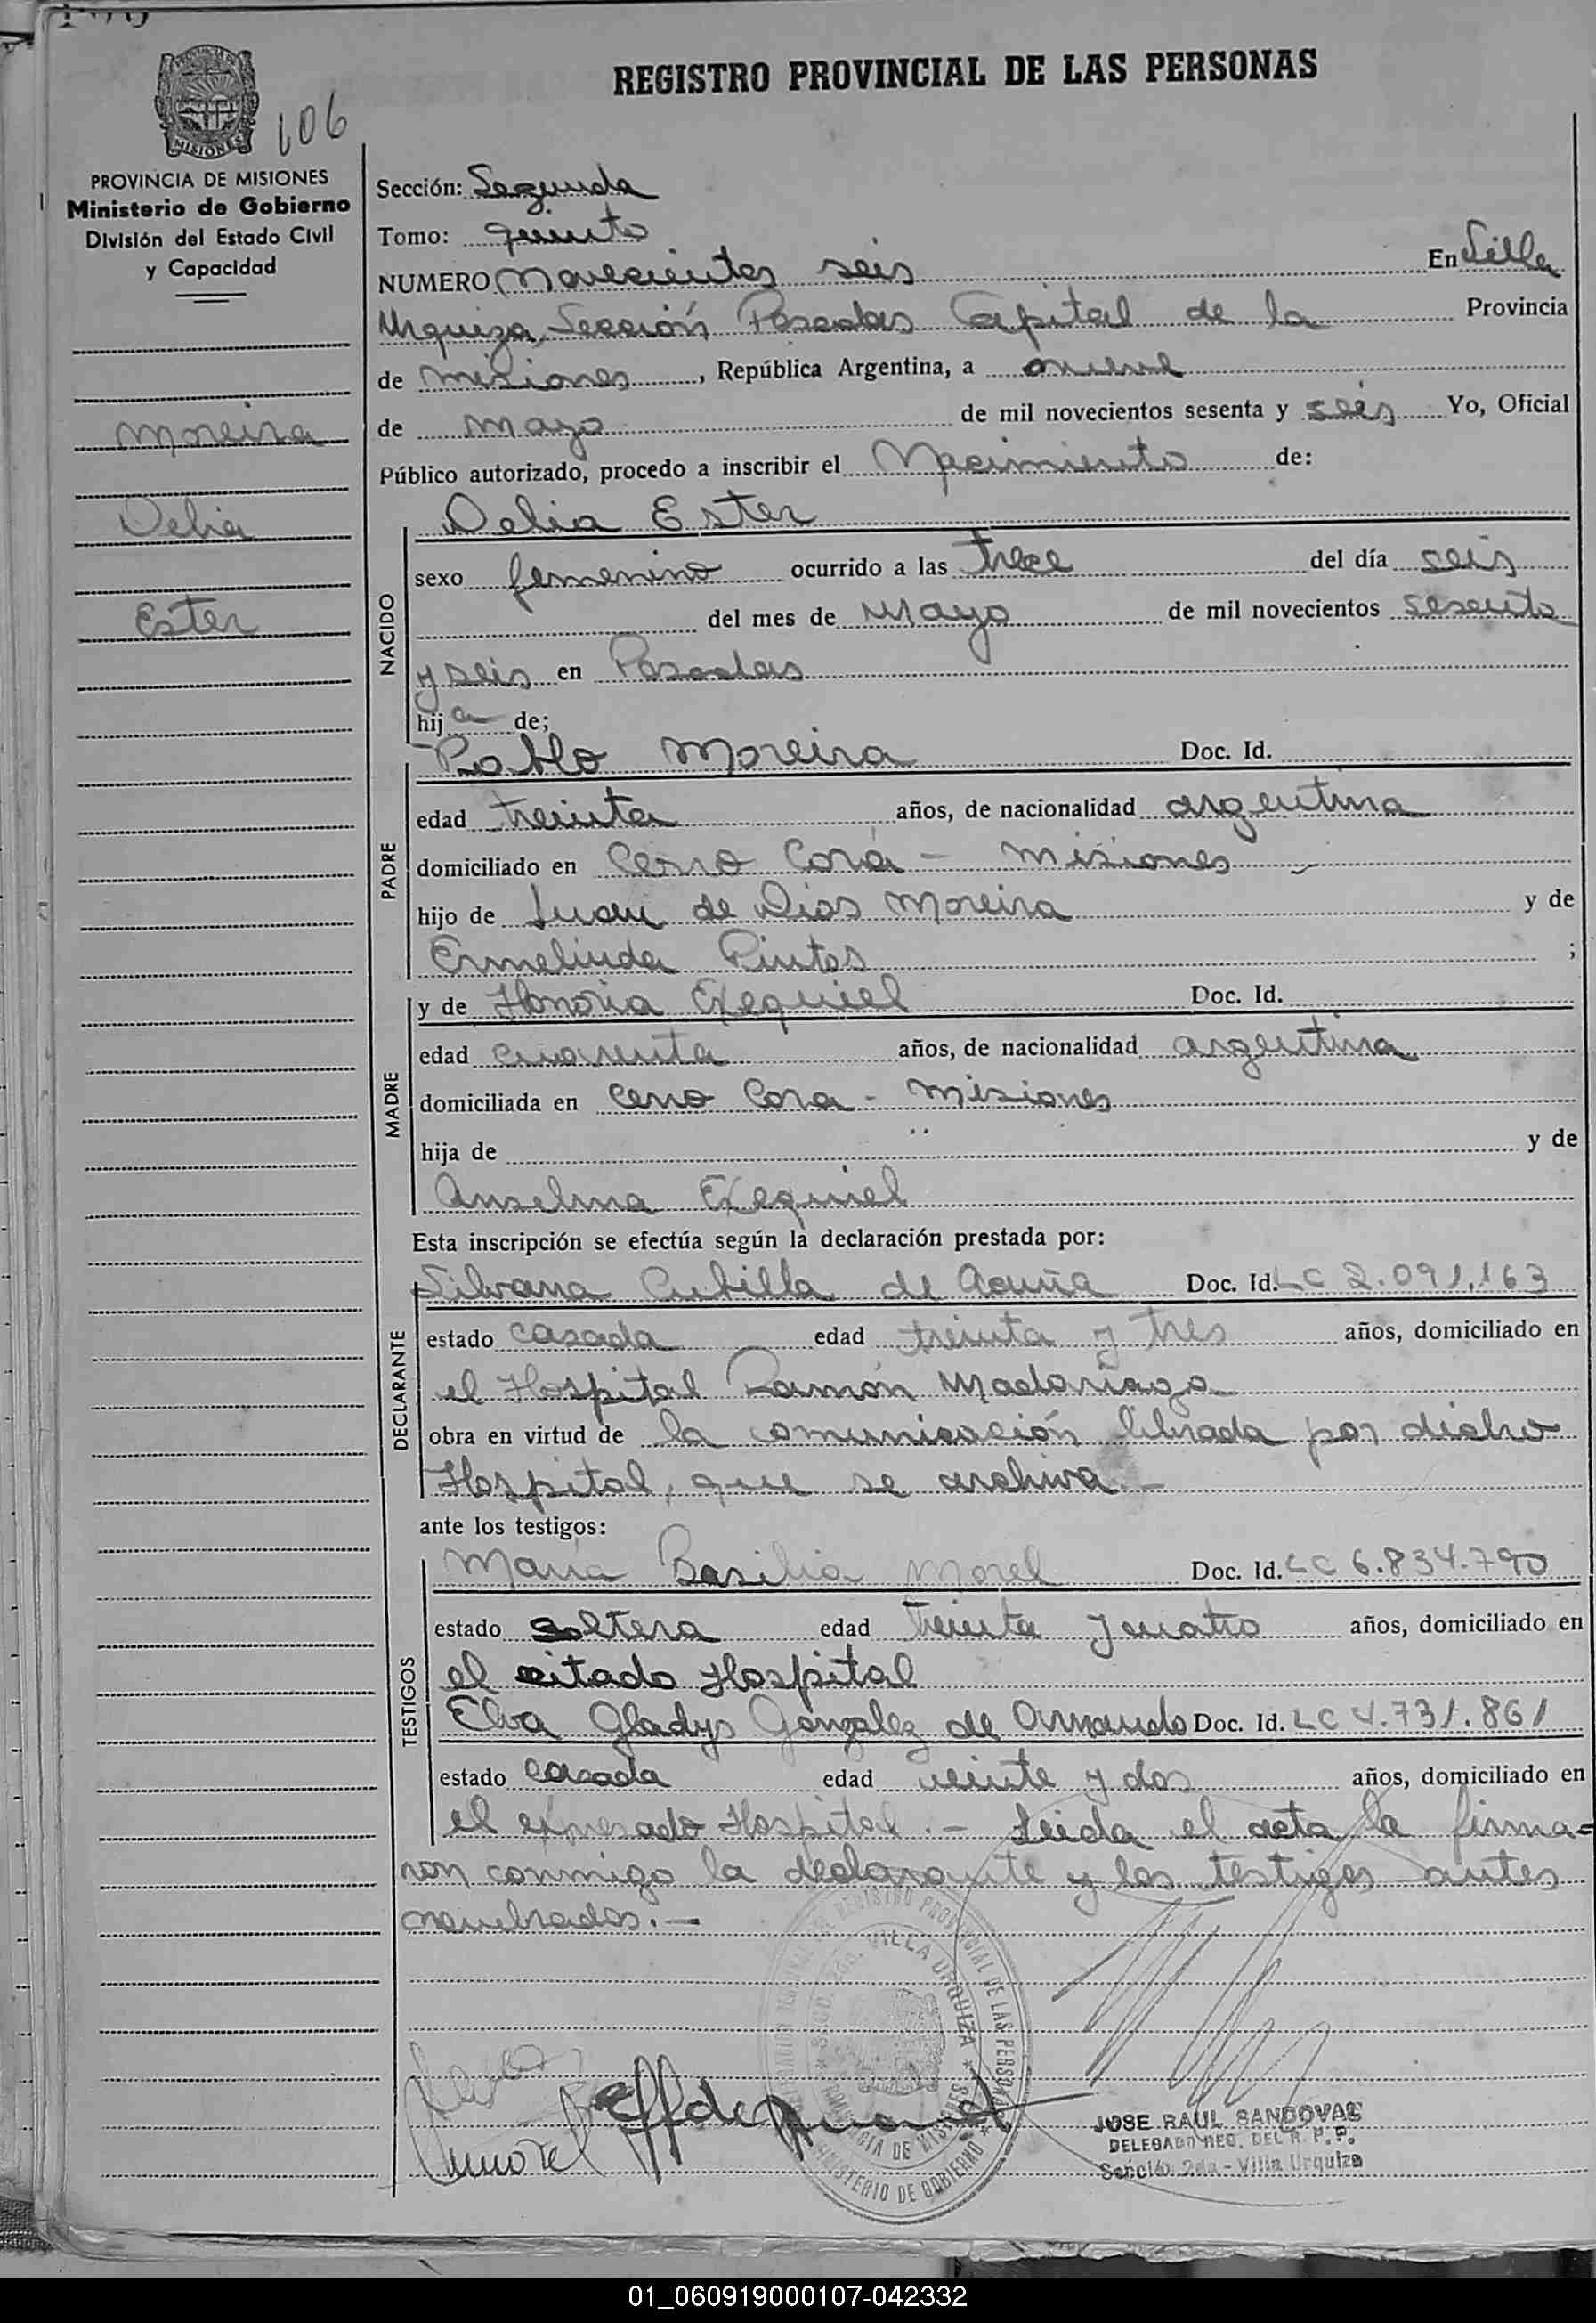 REGISTRO PROVINCIAL DE LAS PERSONAS
MISIONES
106
PROVINCIA DE MISIONES
Ministerio de Gobierno
División del Estado Civil
y Capacidad
Moreira
Delia
Ester
Sección: Segunda
Tomo: quinto
NUMERO Novecientos seis En Villa
Urquiza, Sección Posadas Capital de la Provincia
de Misiones, República Argentina, a nueve
de mayo de mil novecientos sesenta y seis Yo, Oficial
Público autorizado, procedo a inscribir el Nacimiento de:
NACIDO
Delia Ester
sexo femenino ocurrido a las trece del día seis
del mes de Mayo de mil novecientos sesenta
y seis en Posadas
hija de;
PADRE
Pablo Moreira Doc. Id.
edad treinta años, de nacionalidad argentina
domiciliado en Cerro Corá - Misiones
hijo de Juan de Dios Moreira y de
Ermelinda Pintos ;
MADRE
y de Honoria Exequiel Doc. Id.
edad cuarenta años, de nacionalidad argentina
domiciliada en Cerro Cora - Misiones
hija de y de
Anselma Exequiel
Esta inscripción se efectúa según la declaración prestada por:
DECLARANTE
Silvana Cubilla de Acuña Doc. Id. LC 2.091.163
estado casada edad treinta y tres años, domiciliado en
el Hospital Ramón Madariaga
obra en virtud de la comunicación librada por dicho
Hospital, que se archiva.-
ante los testigos:
TESTIGOS
Maria Basilia Morel Doc. Id. LC 6.834.790
estado soltera edad treinta y cuatro años, domiciliado en
el citado Hospital
Elva Gladys Gonzalez de Armando Doc. Id. LC 4.731.861
estado casada edad veinte y dos años, domiciliado en
el expresado Hospital.- Leida el acta la firma=
ron conmigo la declarante y los testigos antes
nombrados.-
REGISTRO PROVINCIAL DE LAS PERSONAS
SECC. 2da. VILLA URQUIZA
PROVINCIA DE MISIONES
MINISTERIO DE GOBIERNO
JOSE RAUL SANDOVAL
DELEGADO REG. DEL R. P. P.
Sección 2da - Villa Urquiza
01_060919000107-042332